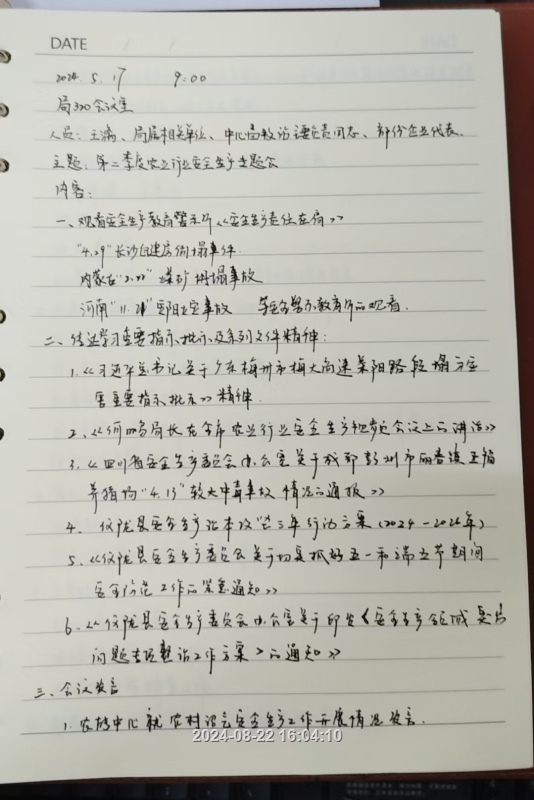 DATE / /
2024. 5. 17 9:00
局320会议室
人员: 王满、局属相关单位、中心高教站主要负责同志、部份企业代表.
主题: 第二季度农业行业安全生产专题会
内容:
一、观看安全生产教育警示片《安全生产责任在肩》
"4.29"长沙自建房倒塌事件.
内蒙古"2.22"煤矿坍塌事故
河南"11.21"安阳火灾事故 等安全警示教育片的观看.
二、传达学习重要指示、批示及系列文件精神:
1.《习近平总书记关于广东梅州市梅大高速茶阳路段塌方灾
害重要指示批示》精神.
2、《何 局长在全市农业行业安全生产 会议上的讲话》
3、《四川省安全生产委员会办公室关于成都彭州市丽春镇 
养殖场"4.13"较大中毒事故情况的通报》
4. 仪陇县安全生产治本攻坚三年行动方案(2024-2026年)
5、《仪陇县安全生产委员会关于切实抓好五一和端午节期间
安全防范工作的紧急通知》
6.《仪陇县安全生产委员会办公室关于印发《安全生产领域 
问题专项整治工作方案》的通知》
三、会议发言
1. 农技中心就农村沼气安全生产工作开展情况发言.
2024-08-22 16:04:10